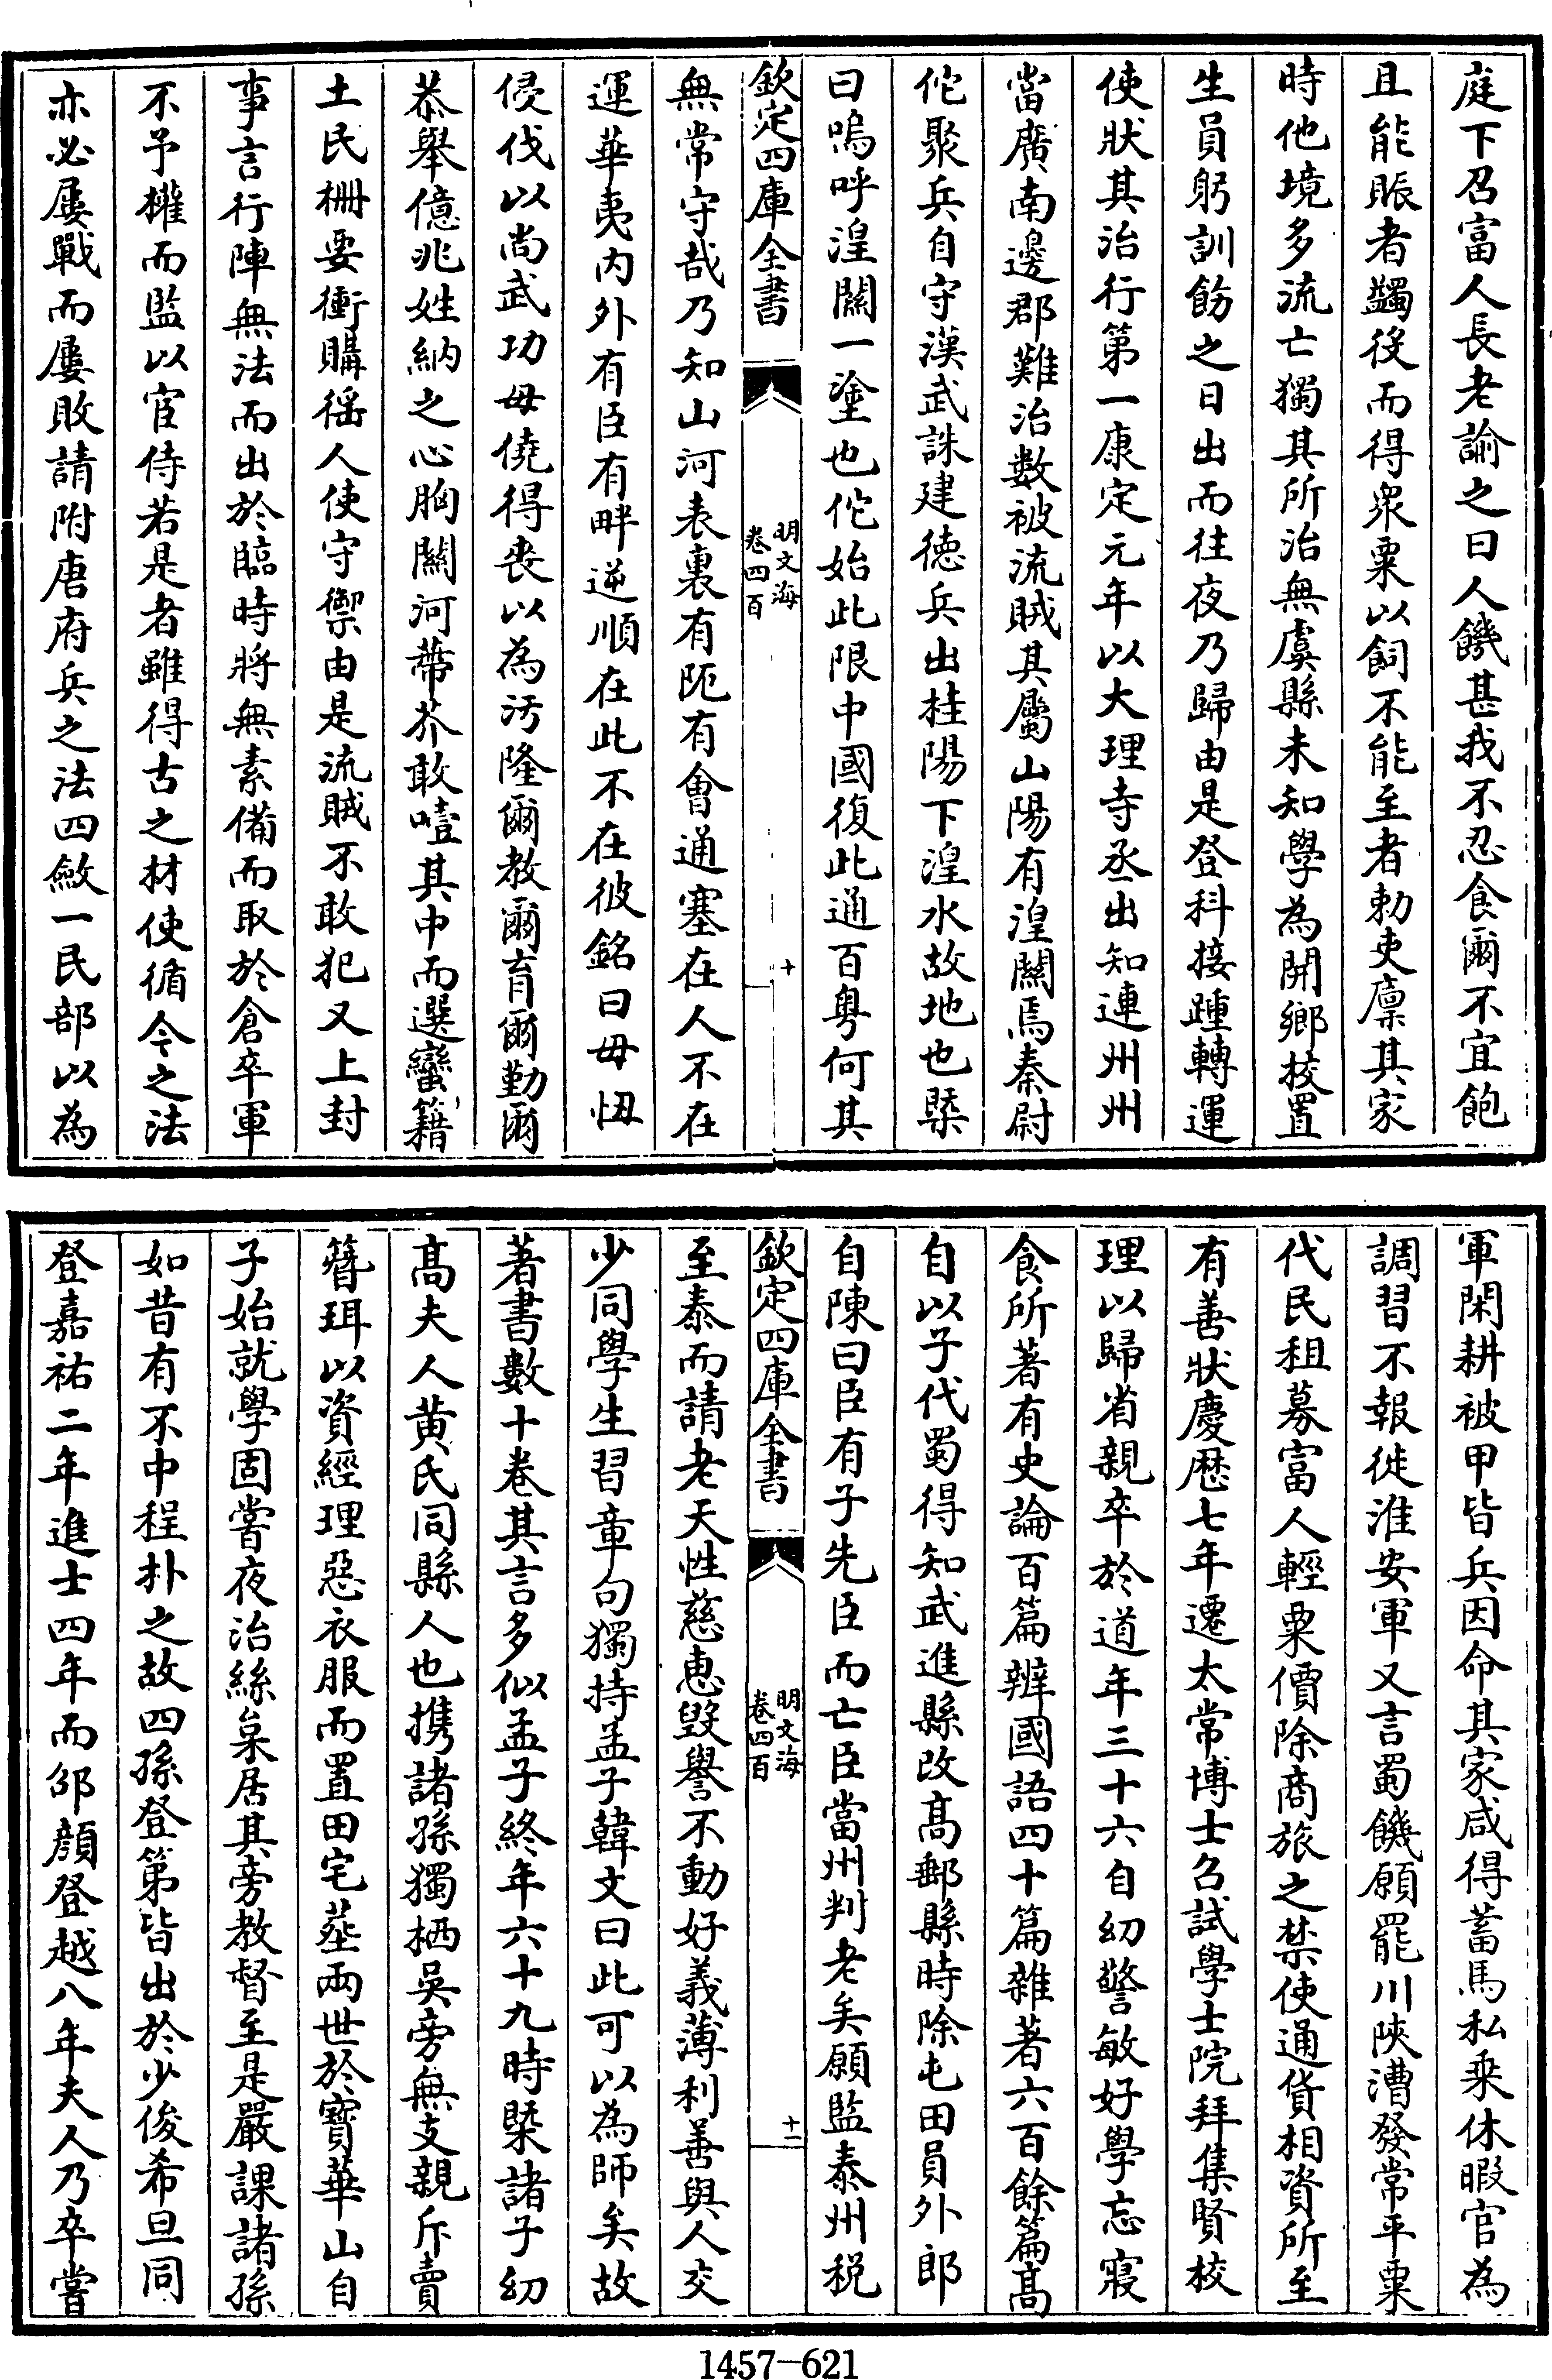 庭下召富人長老諭之曰人饑甚我不忍食爾不宜飽
且能賑者蠲役而得衆粟以飼不能至者勅吏廩其家
時他境多流亡獨其所治無虞縣未知學為開鄉校置
生員躬訓飭之日出而往夜乃歸由是登科接踵轉運
使狀其治行第一康定元年以大理寺丞出知連州州
當廣南邊郡難治數被流賊其屬山陽有湟關焉秦尉
佗聚兵自守漢武誅建德兵出桂陽下湟水故地也槩
曰嗚呼湟關一塗也佗始此限中國復此通百粵何其
欽定四庫全書
明文海
卷四百
十
無常守哉乃知山河表裏有阨有會通塞在人不在
運華夷内外有臣有畔逆順在此不在彼銘曰毋忸
侵伐以尚武功毋僥得喪以為汚隆爾教爾育爾勤爾
恭舉億兆姓納之心胸關河蔕芥敢噎其中而選蠻籍
土民柵要衝購徭人使守禦由是流賊不敢犯又上封
事言行陣無法而出於臨時將無素備而取於倉卒軍
不予權而監以宦侍若是者雖得古之材使循今之法
亦必屢戰而屢敗請附唐府兵之法四斂一民部以為
軍閑耕被甲皆兵因命其家咸得蓄馬私乗休暇官為
調習不報徙淮安軍又言蜀饑願罷川陝漕發常平粟
代民租募富人輕粟價除商旅之禁使通貨相資所至
有善狀慶厯七年遷太常博士召試學士院拜集賢校
理以歸省親卒於道年三十六自幼警敏好學忘寢
食所著有史論百篇辨國語四十篇雜著六百餘篇髙
自以子代蜀得知武進縣改髙郵縣時除屯田員外郎
自陳曰臣有子先臣而亡臣當州判老矣願監泰州税
欽定四庫全書
明文海
卷四百
十一
至泰而請老天性慈惠毀譽不動好義薄利善與人交
少同學生習章句獨持孟子韓文曰此可以為師矣故
著書數十巻其言多似孟子終年六十九時槩諸子幼
髙夫人黄氏同縣人也携諸孫獨栖吳旁無支親斥賣
簪珥以資經理惡衣服而置田宅塟兩世於寳華山自
子始就學固嘗夜治絲枲居其旁教督至是嚴課諸孫
如昔有不中程扑之故四孫登第皆出於少俊希旦同
登嘉祐二年進士四年而邠顔登越八年夫人乃卒嘗
1457-621